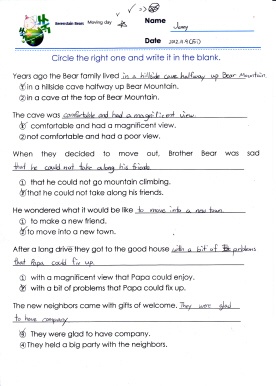 Berenstain Bears Moving day
Name
Date
Circle the right one and write it in the blank.
Years ago the Bear family lived in a hillside cave halfway up Bear Mountain.
① in a hillside cave halfway up Bear Mountain.
② in a cave at the top of Bear Mountain.
The cave was comfortable and had a magnificent view.
① comfortable and had a magnificent view.
② not comfortable and had a poor view.
When they decided to move out, Brother Bear was sad
that he could not take along his friends.
① that he could not go mountain climbing.
② that he could not take along his friends.
He wondered what it would be like to move into a new town.
① to make a new friend.
② to move into a new town.
After a long drive they got to the good house with a bit of problems
that Papa could fix up.
① with a magnificent view that Papa could enjoy.
② with a bit of problems that Papa could fix up.
The new neighbors came with gifts of welcome. They were glad
to have company.
① They were glad to have company.
② They held a big party with the neighbors.